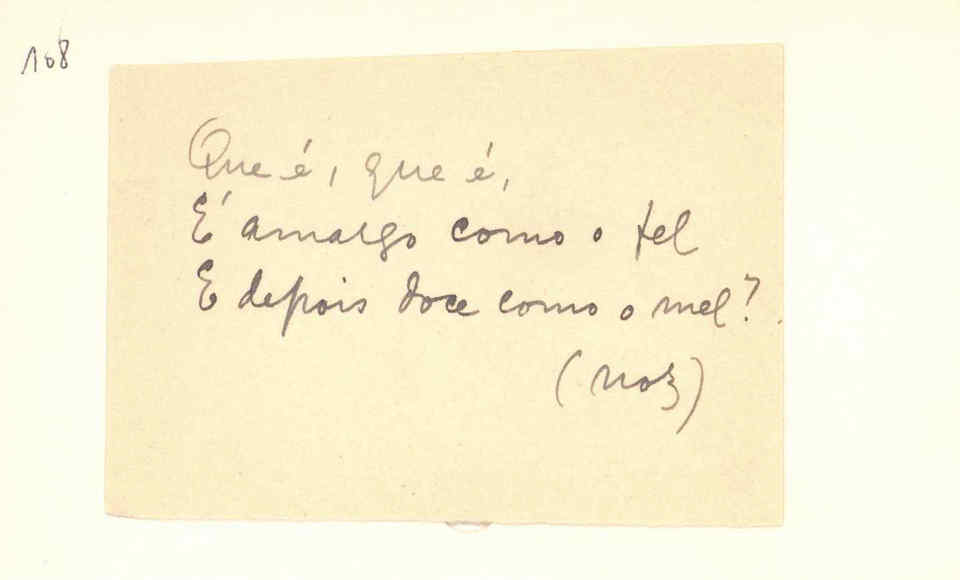 108
Que é, que é,
É amargo como o fel
E depois doce como o mel?
(noz)